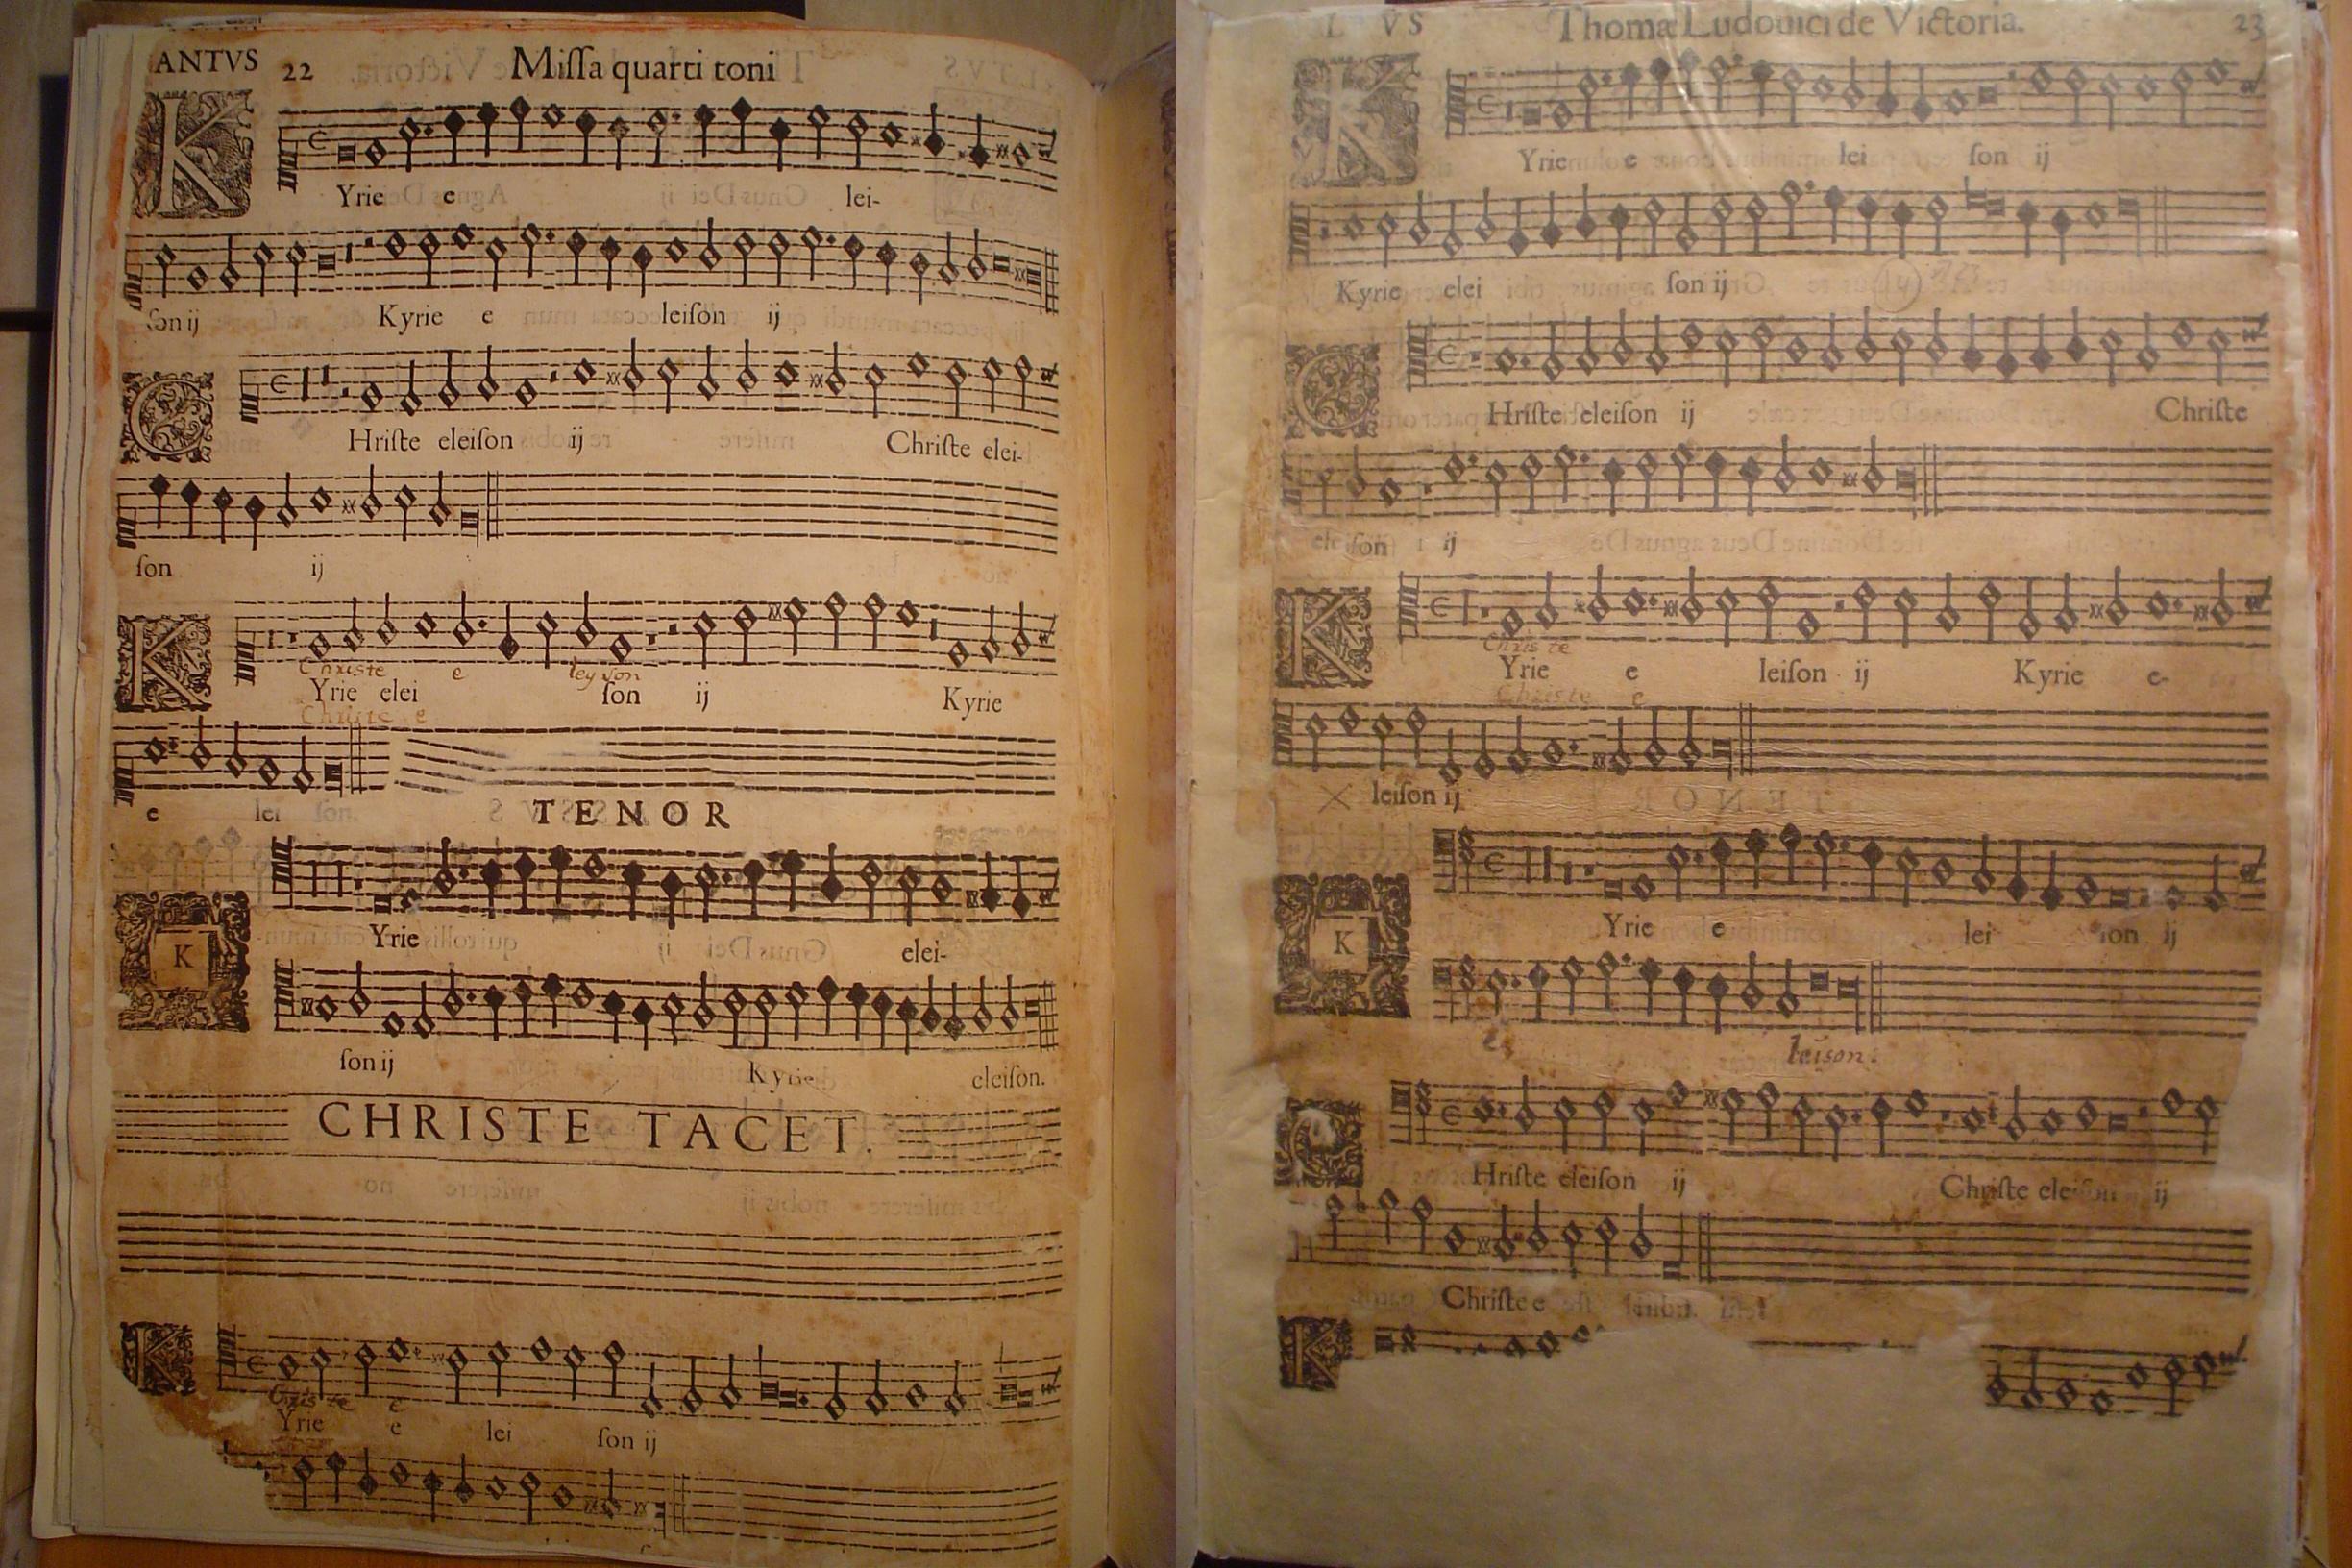 ANTVS 22 Miſſa quarti toni
Yrie e lei-
ſon ij Kyrie e leiſon ij
Hriſte eleiſon ij Chriſte elei-
ſon ij
Chriſte e leyſon
Yrie elei ſon ij Kyrie
Chriſte e
e lei ſon.
TENOR
K
Yrie elei-
ſon ij Kyrie eleiſon.
CHRISTE TACET.
Criſte e
Yrie e lei ſon ij
L VS Thomæ Ludouici de Victoria. 23
Yrie e lei ſon ij
Kyrie elei ſon ij
Hriſte eleiſon ij Chriſte
eleiſon ij
Chriſte
Yrie e leiſon ij Kyrie e-
Chriſte e
leiſon ij
K
Yrie e lei ſon ij
e leison.
Hriſte eleiſon ij Chriſte eleiſon ij
Chriſte e